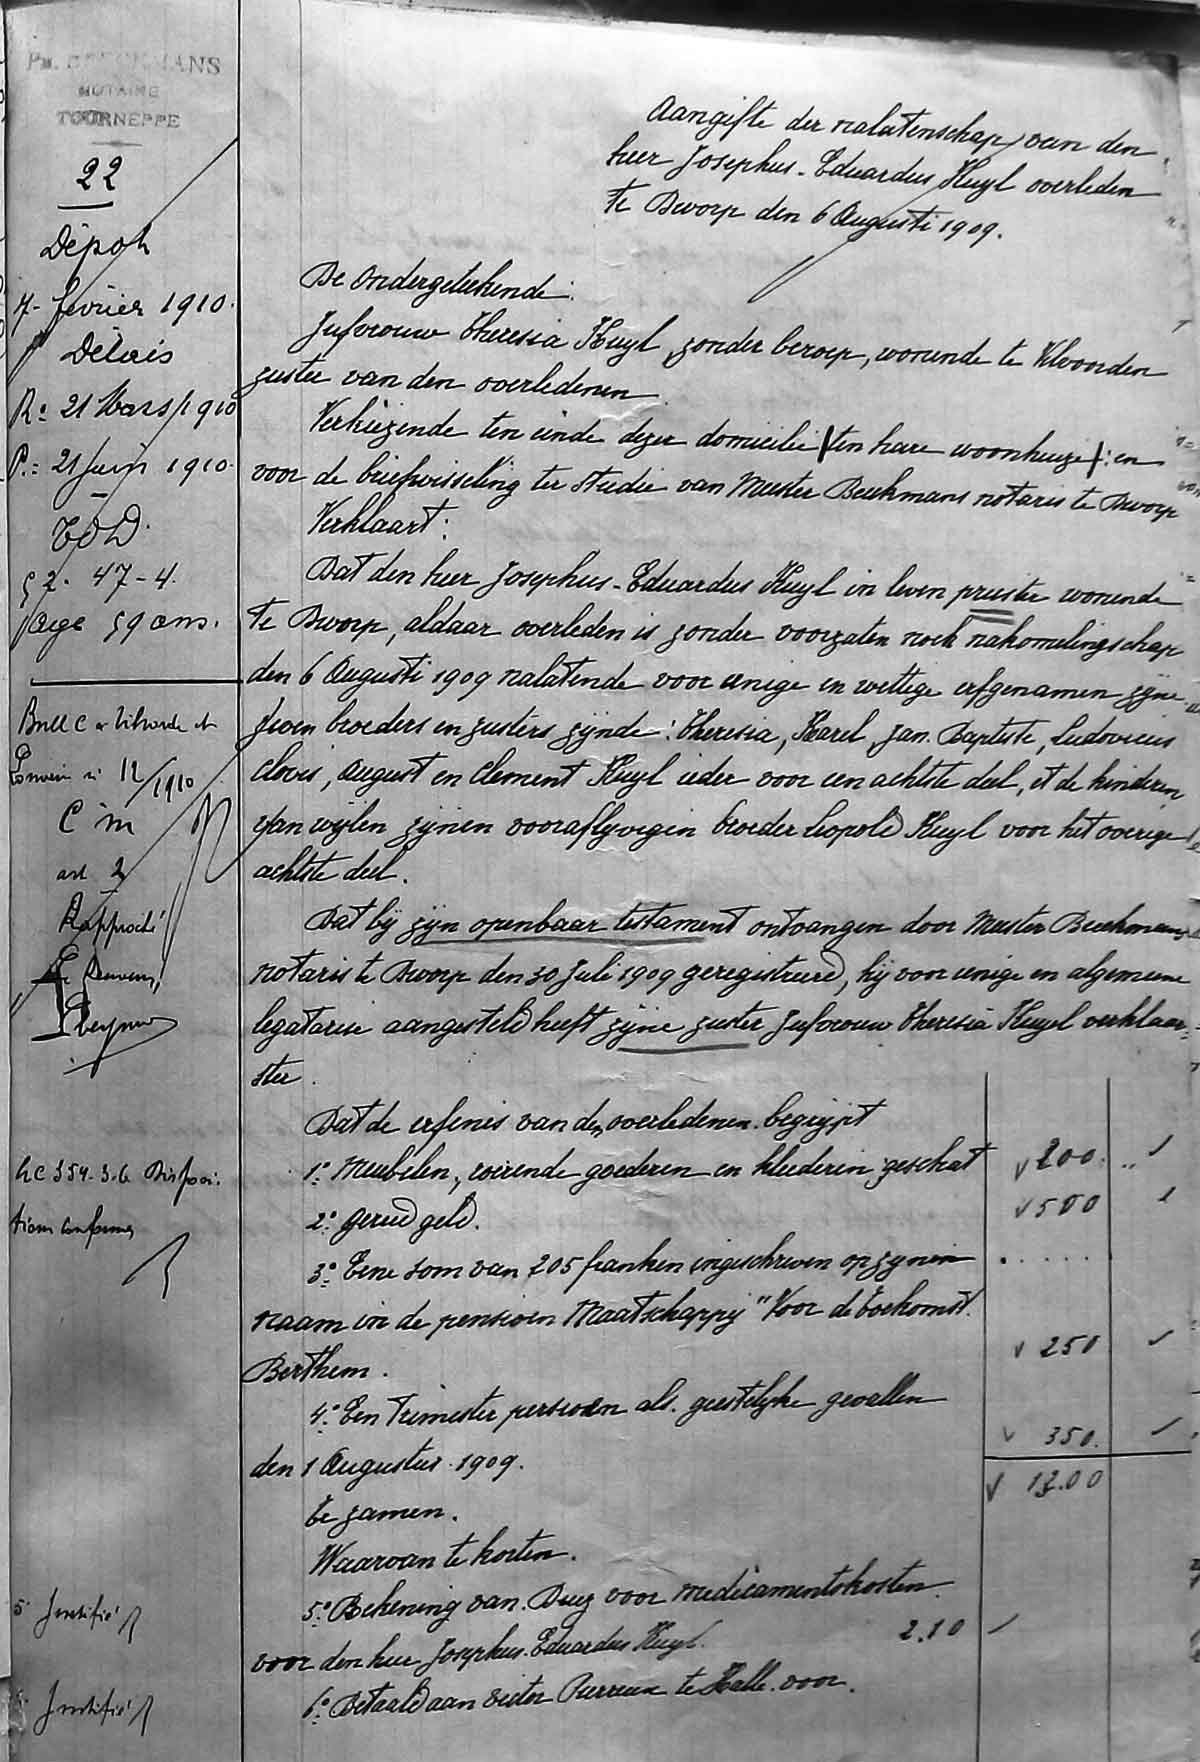 NOTAIRE
TOURNEPPE
22
Dépot
7 février 1910.
Délais
R: 21 Mars 1910
P.: 21 Juin 1910.
§ 2. 47-4.
age 59 ans.
12/1910
art 2
Rapproché
5° Justifié
Justifié
Aangifte der nalatenschap van den
heer Josephus-Eduardus Kuyl overleden
te Dworp den 6 Augusti 1909.
De ondergeteekende:
Jufvrouw Theresia Kuyl, zonder beroep, wonende te Vilvoorden
zuster van den overledenen
Verkiezende ten einde dezer domicilie ten hare woonhuize en
voor de briefwisseling ter studie van Meester Beeckmans notaris te Dworp
Verklaart:
Dat den heer Josephus-Eduardus Kuyl in leven priester wonende
te Dworp, aldaar overleden is zonder voorzaten noch nakomelingschap
den 6 Augusti 1909 nalatende voor eenige en wettige erfgenamen zyne
zeven broeders en zusters zynde: Theresia, Karel, Jan-Baptiste, Ludovicus
Clovis, August en Clement Kuyl ieder voor een achtste deel, et de kinderen
van wijlen zynen vooraflyvigen broeder Leopold Kuyl voor het overige
achtste deel.
Dat bij zyn openbaar testament ontvangen door Meester Beeckmans
notaris te Dworp den 30 Juli 1909 geregistreerd, hij voor eenige en algemeene
legatarise aangesteld heeft zyne zuster Jufvrouw Theresia Kuyl verklaar=
ster.
Dat de erfenis van den overledenen begrijpt
1° Meubelen, roerende goederen en kleederen geschat 200.
2° Gereed geld. 500
3° Eene som van 205 franken ingeschreven op zynen
naam in de pensioen Maatschappij "Voor de toekomst
Berthem. 250
4° Een trimester persioen als geestelyke gevallen
den 1 Augustus 1909. 350.
te zamen. 13.00
Waarvan te korten.
5° Rekening van Duez voor medicamentskosten
voor den heer Josephus Eduardus Kuyl. 2.10
6° Betaald aan Victor te Halle voor.